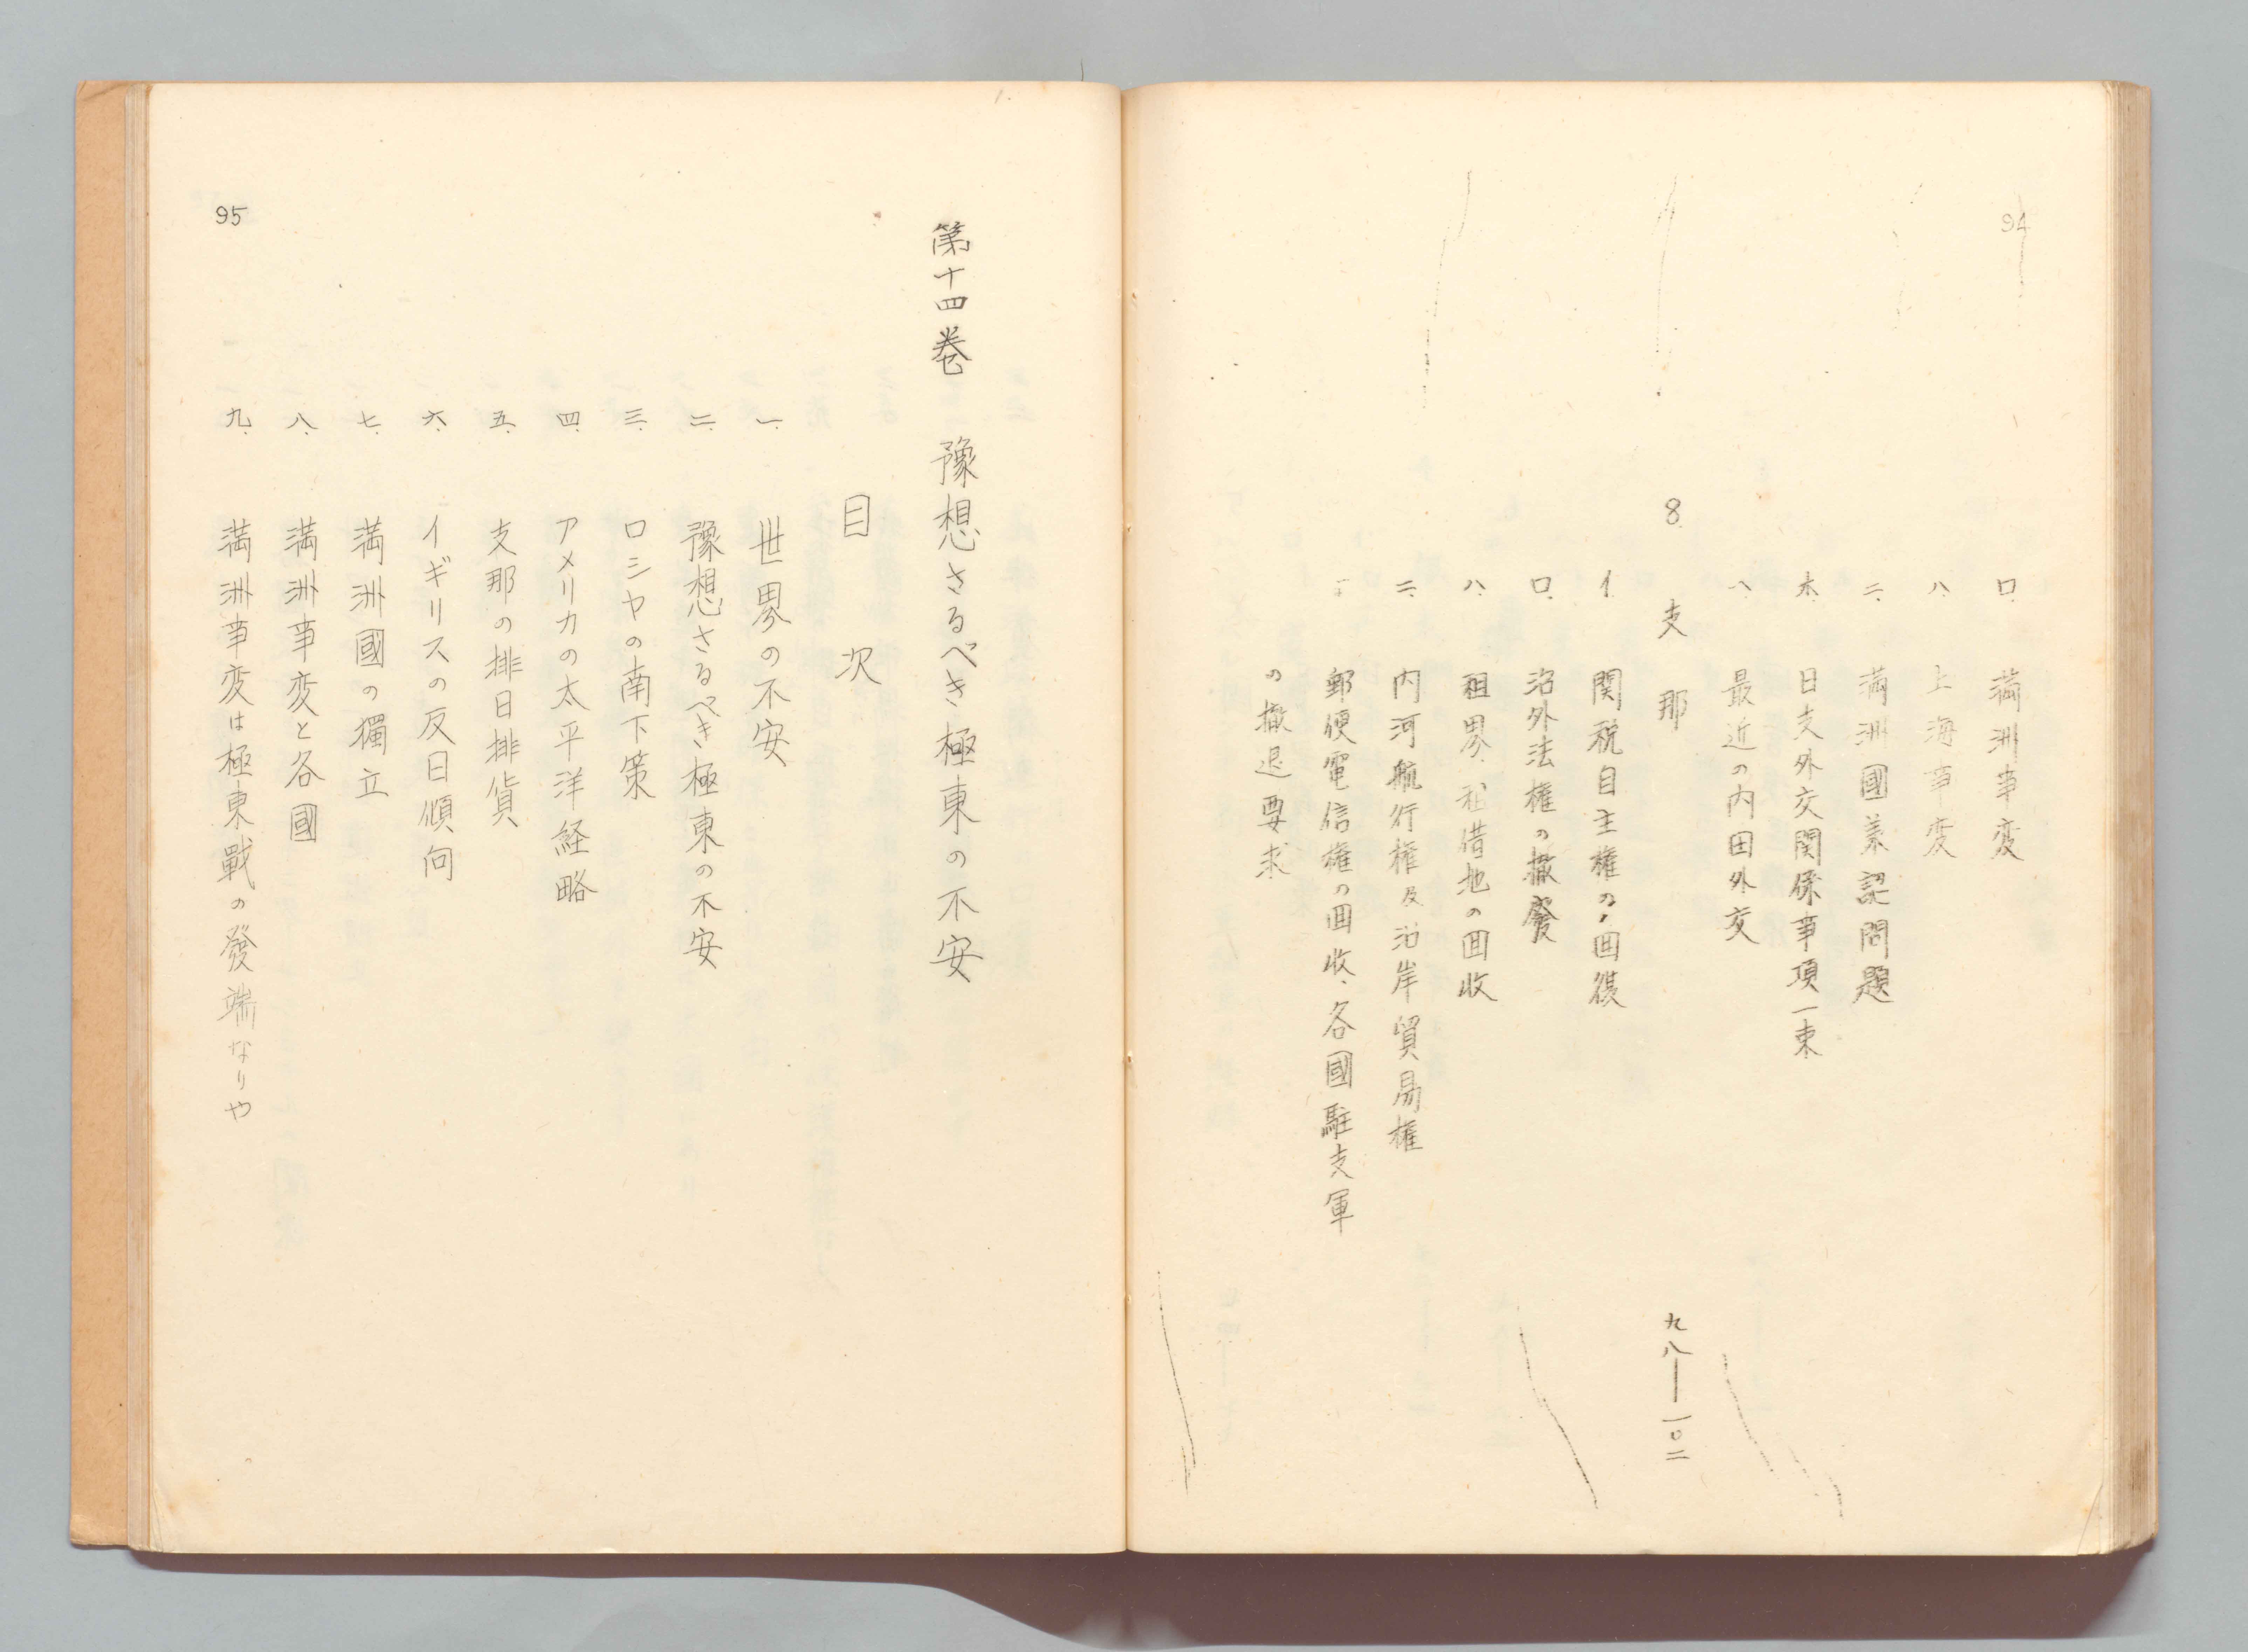 94
ロ. 満洲事変
ハ. 上海事変
ニ. 満洲國承認問題
ホ. 日支外交関係事項一束
ヘ. 最近の内田外交
8. 支那 九八―一〇二
イ. 関税自主権の回復
ロ. 治外法権の撤廃
ハ. 租界、租借地の回收
ニ. 内河航行権及沿岸貿易権
郵便電信権の回收、各國駐支軍
の撤退要求
95
第十四巻 豫想さるべき極東の不安
目次
一. 世界の不安
二. 豫想さるべき極東の不安
三. ロシヤの南下策
四. アメリカの太平洋経略
五. 支那の排日排貨
六. イギリスの反日傾向
七. 満洲國の獨立
八. 満洲事変と各國
九. 満洲事変は極東戰の發端なりや